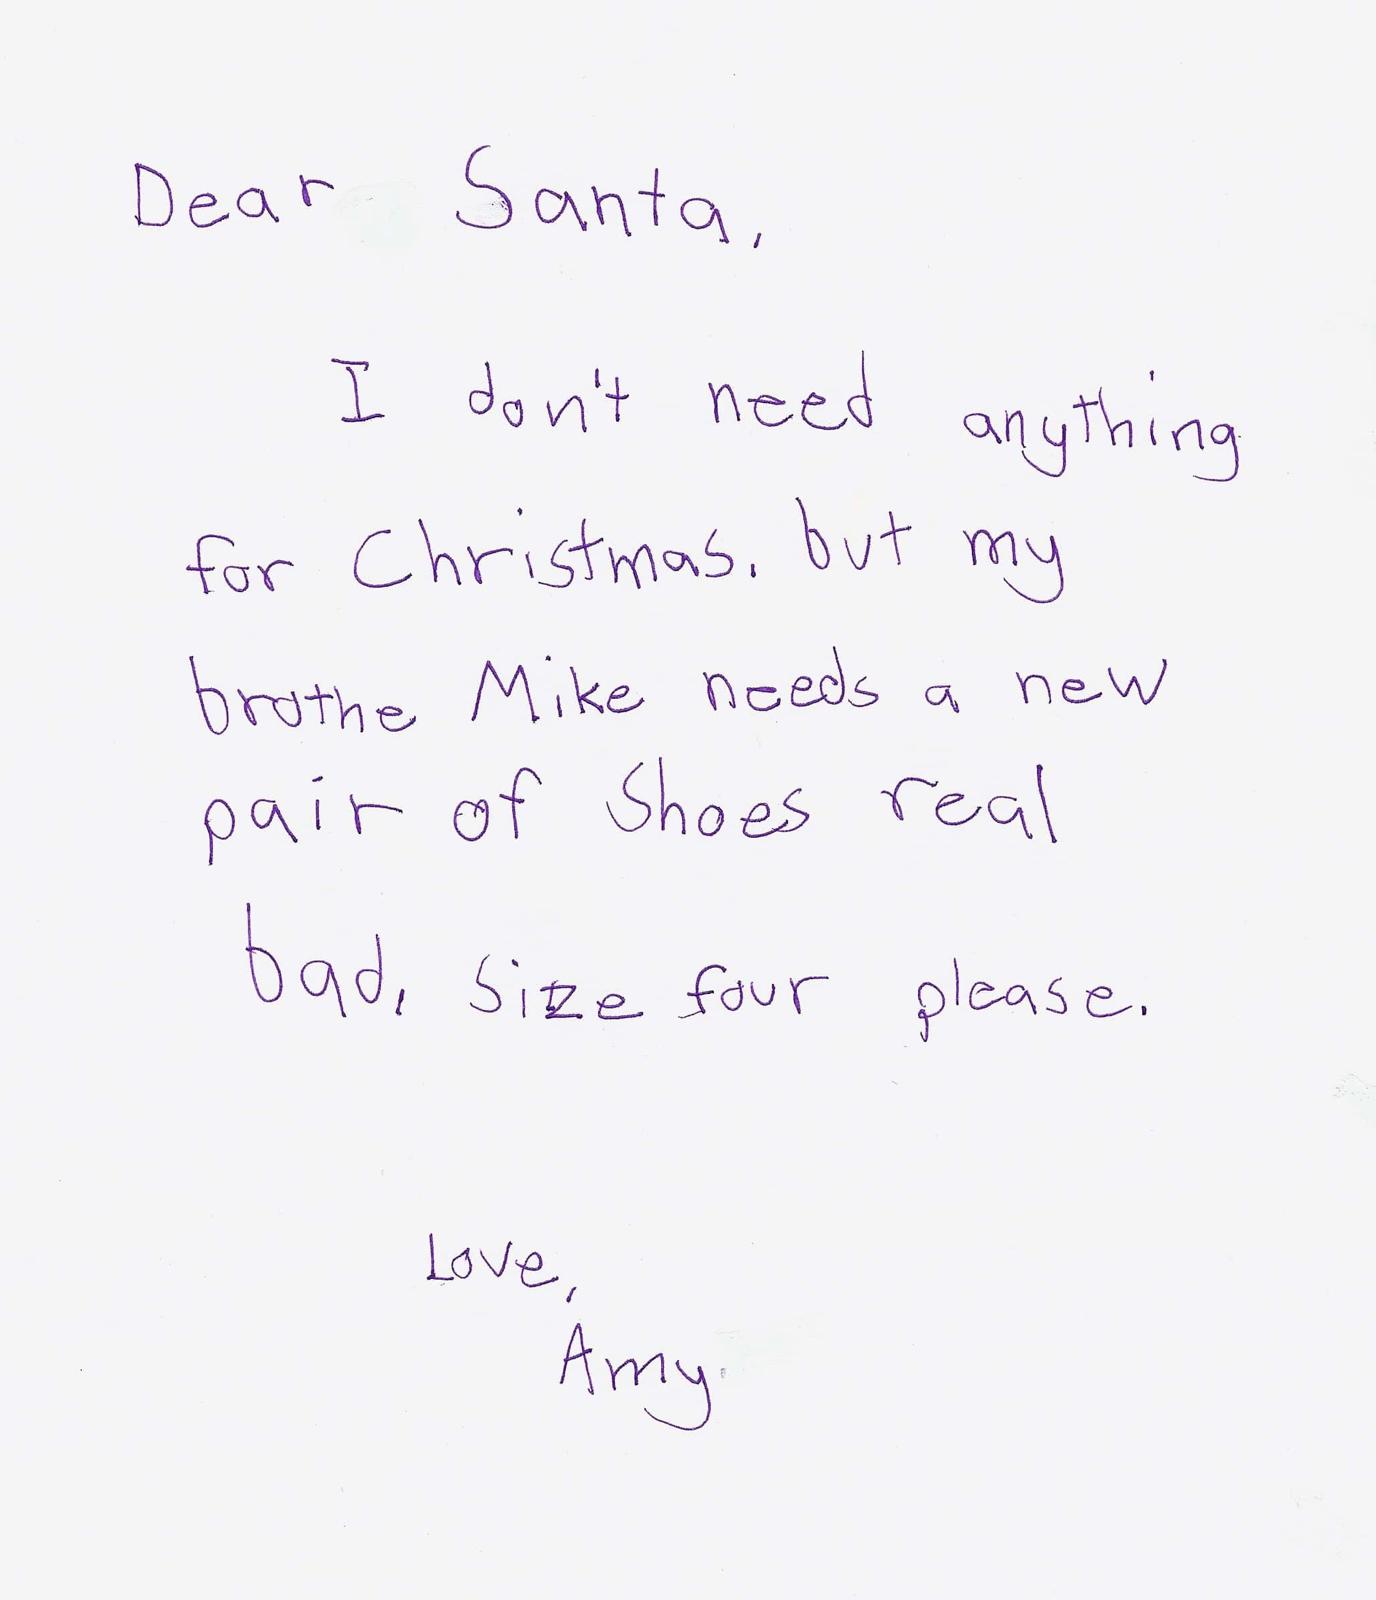 Dear Santa,
I don't need anything
for Christmas. but my
brothe Mike needs a new
pair of Shoes real
bad. Size four please.
Love,
Amy.